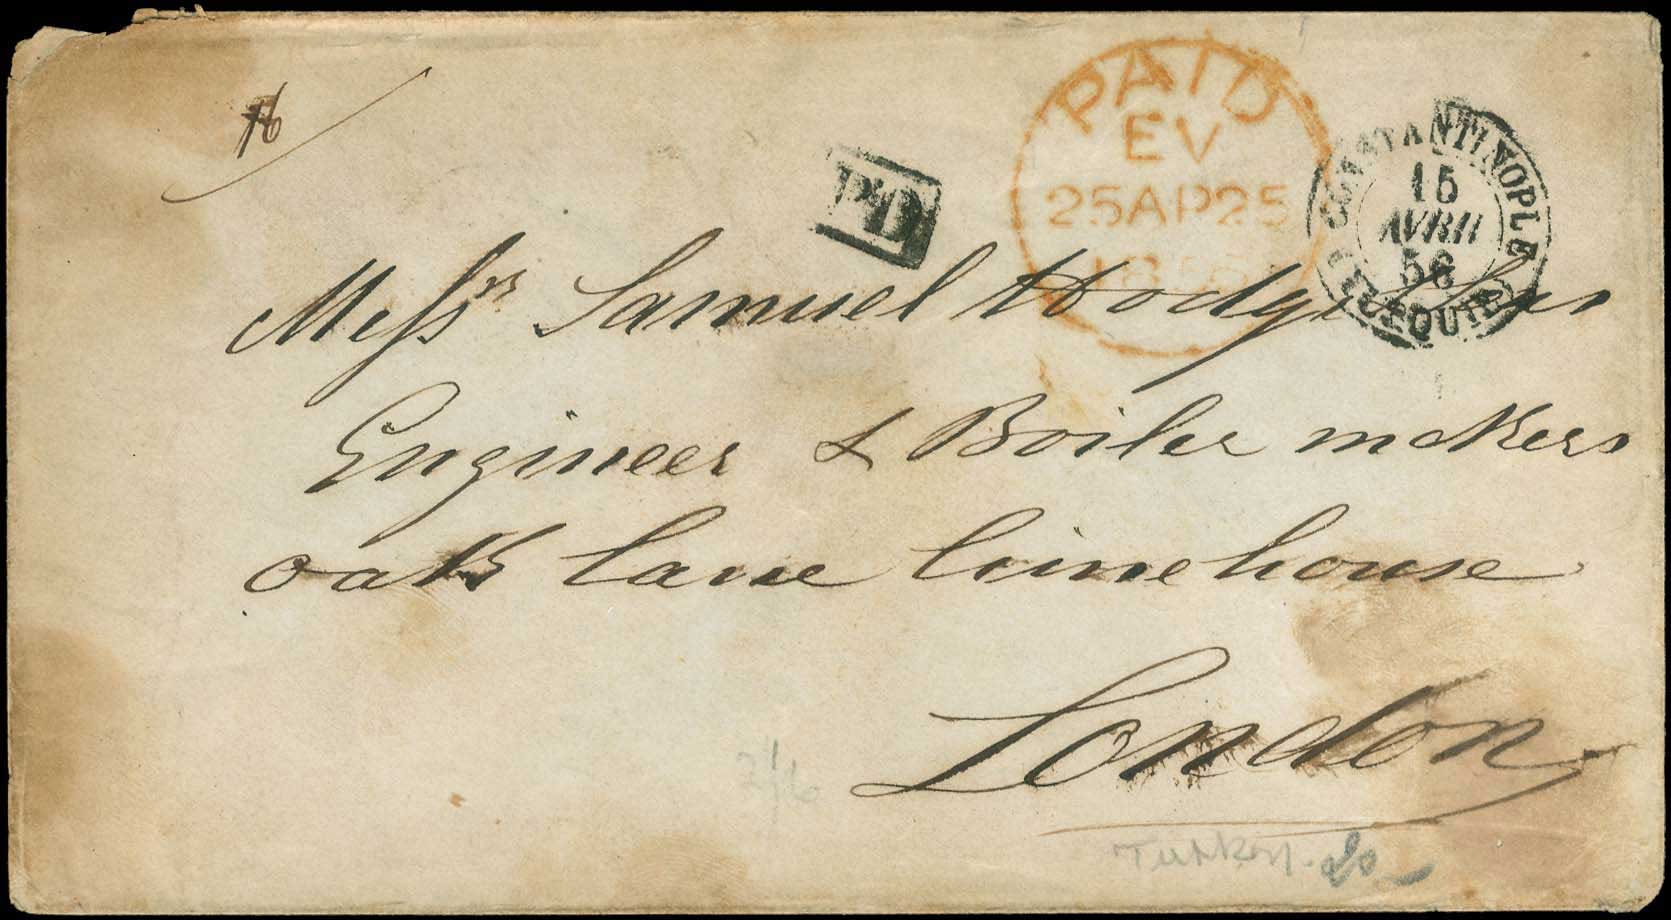 16
PAID
EV
25AP25
1856
CONSTANTINOPLE
15
AVRIL
56
(TURQUIE)
P.D.
Messrs Samuel Hodge & Son
Engineer & Boiler makers
oak lane limehouse
London
2/6
Turkey